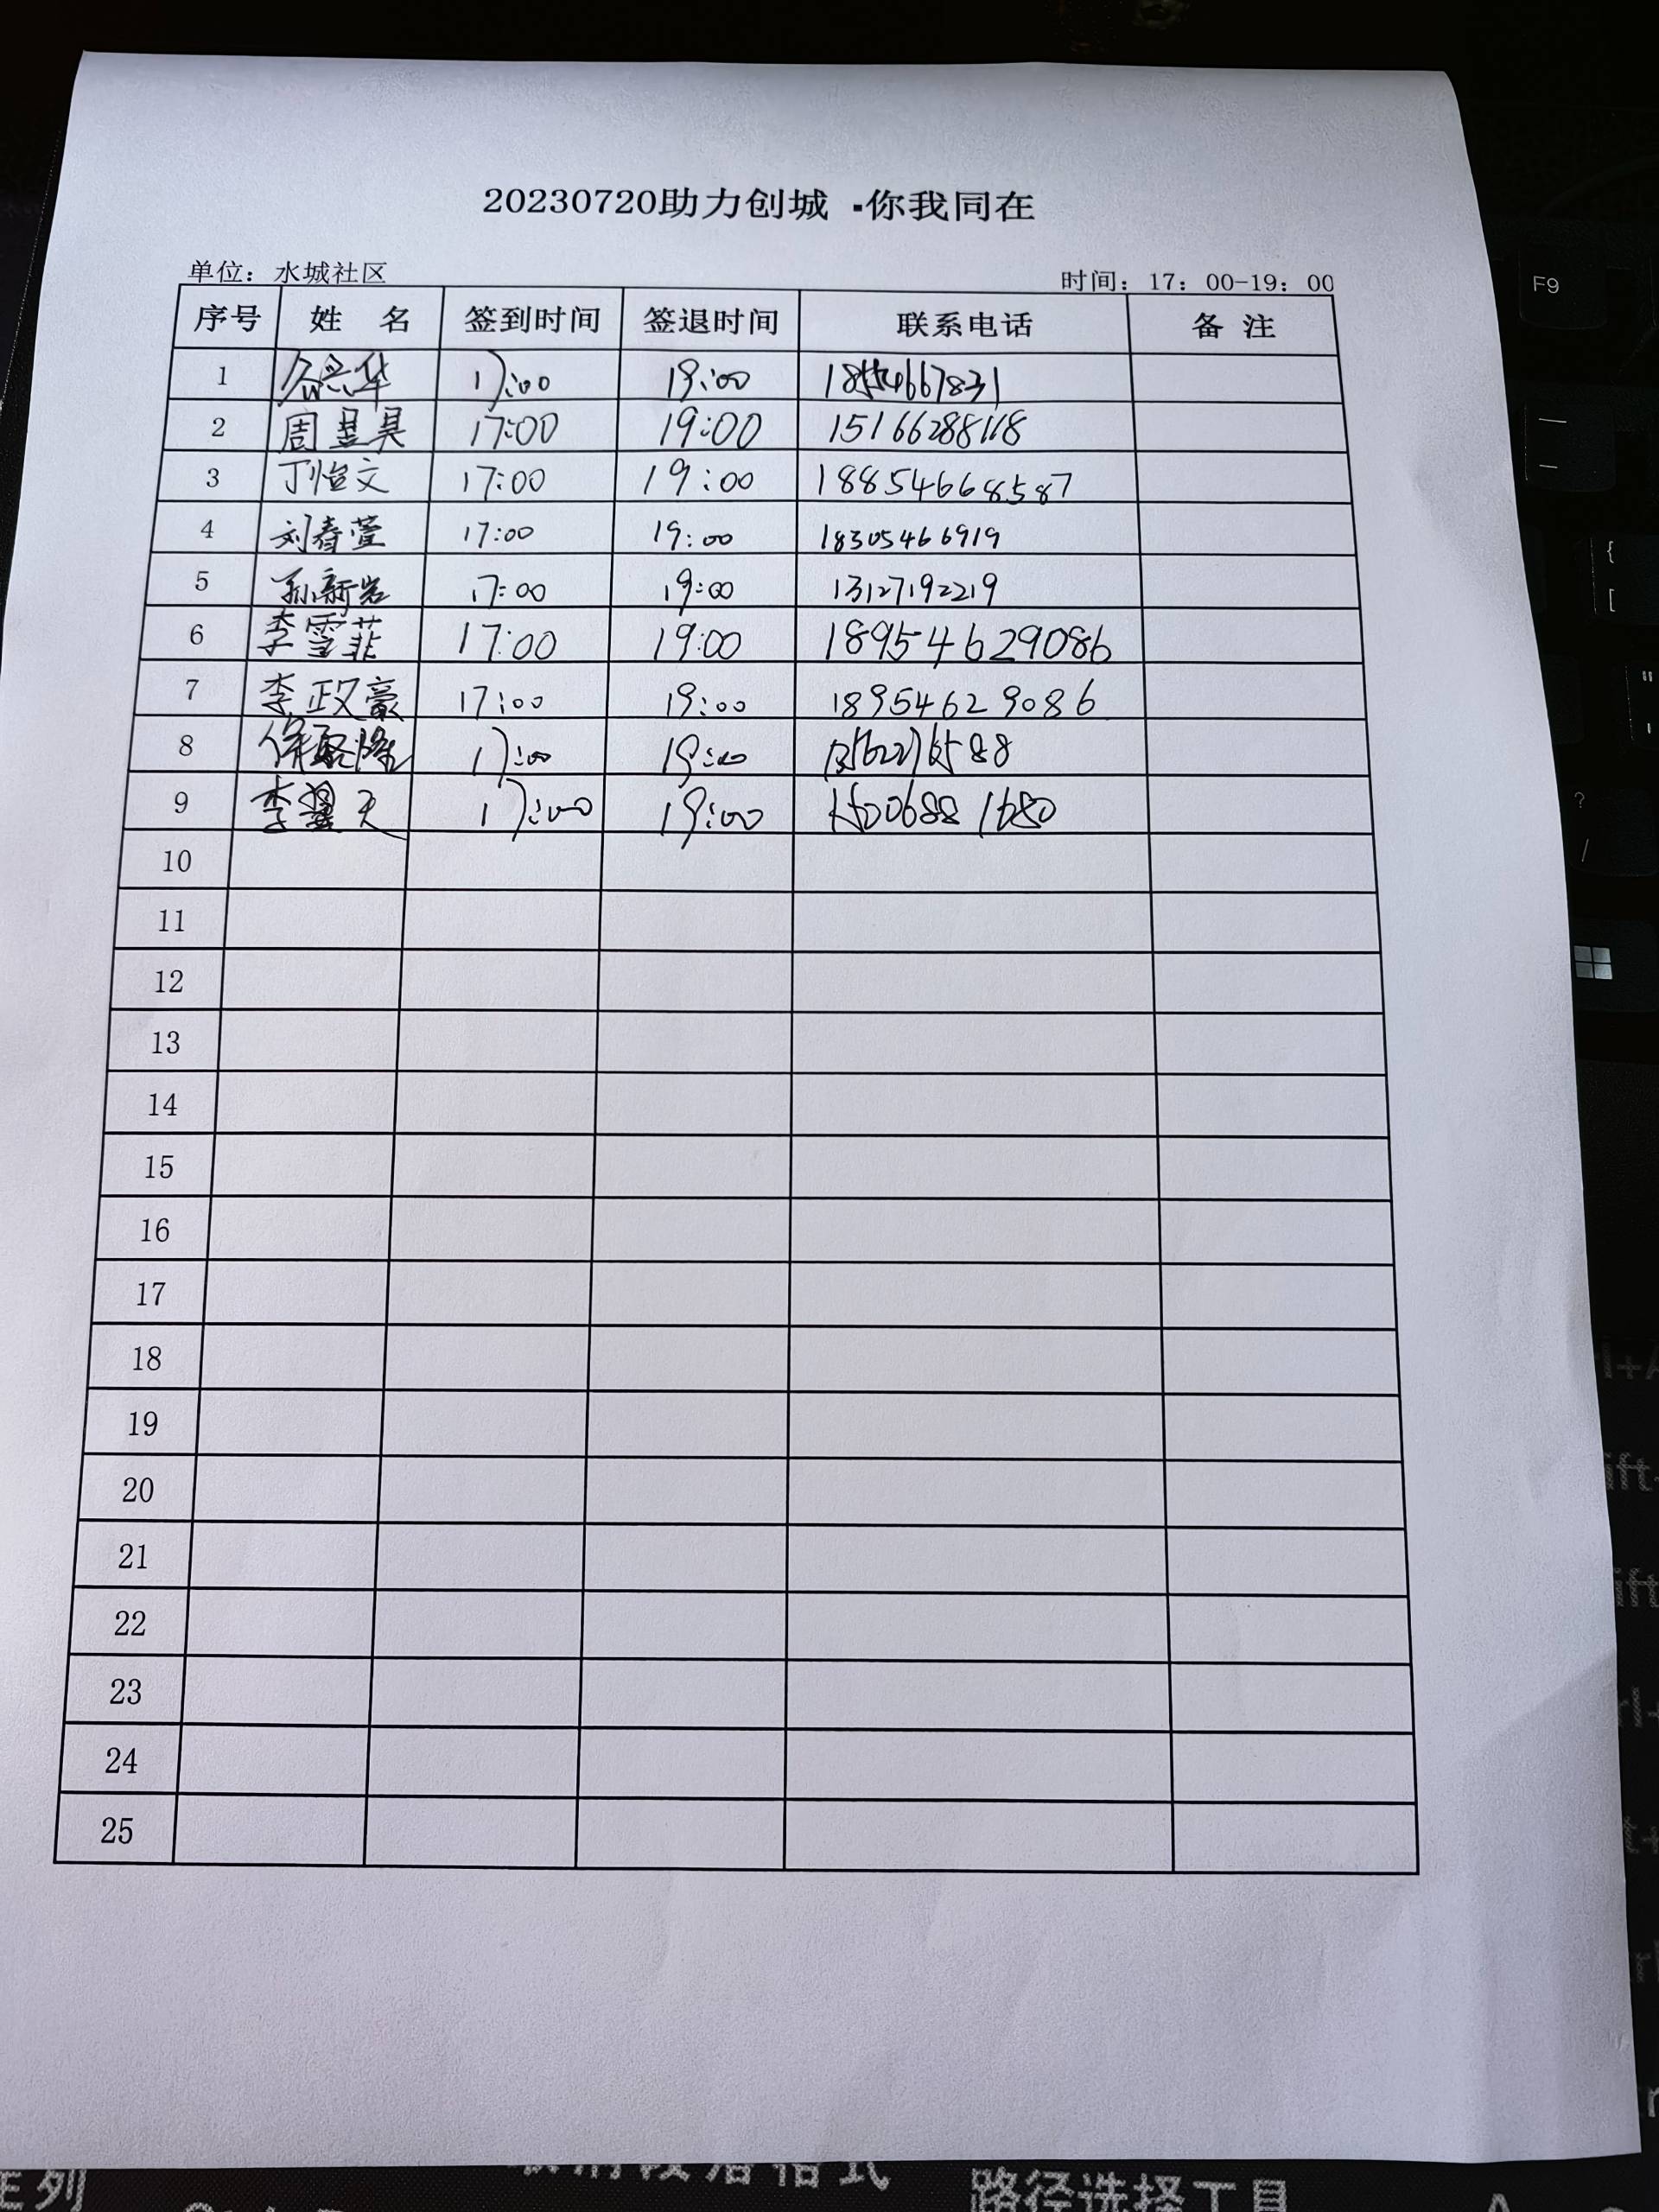 20230720助力创城 ·你我同在
单位：水城社区 时间：17：00-19：00
序号 姓 名 签到时间 签退时间 联系电话 备 注
1 谷兴华 17:00 19:00 18554667831
2 周昱昊 17:00 19:00 15166288118
3 丁怡文 17:00 19:00 18854668587
4 刘春萱 17:00 19:00 18305466919
5 孙新岩 17:00 19:00 13127192219
6 李雪菲 17:00 19:00 18954629086
7 李政豪 17:00 19:00 18954629086
8 17:00 19:00
9 李翼天 17:00 19:00
10
11
12
13
14
15
16
17
18
19
20
21
22
23
24
25
F9
路径选择工具